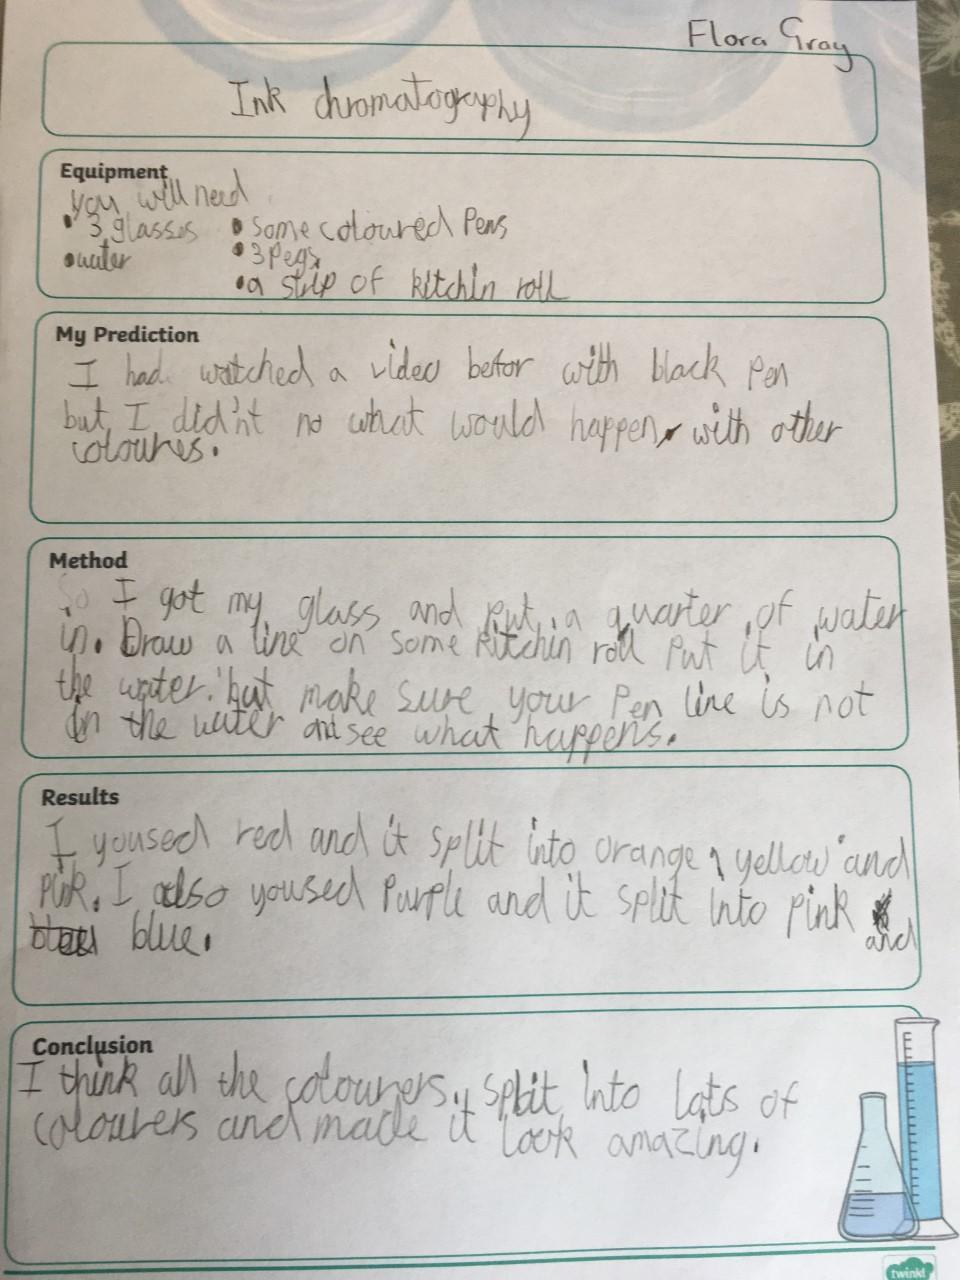 Flora Gray
Ink chromatography
Equipment
you will need
• 3 glasses
• water
• some coloured Pens
• 3 Pegs
• a strip of kitchin roll
My Prediction
I had watched a video befor with black Pen
but I did'nt no what would happen with other
coloures.
Method
So I got my glass and put a quarter of water
in. Draw a line on some kitchin roll Put it in
the water. but make sure your Pen line is not
in the water and see what happens.
Results
I yoused red and it split into orange, yellow and
pink. I also yoused Purple and it split into pink
and
blue.
Conclusion
I think all the colourers split into lots of
colourers and made it look amazing.
twinkl